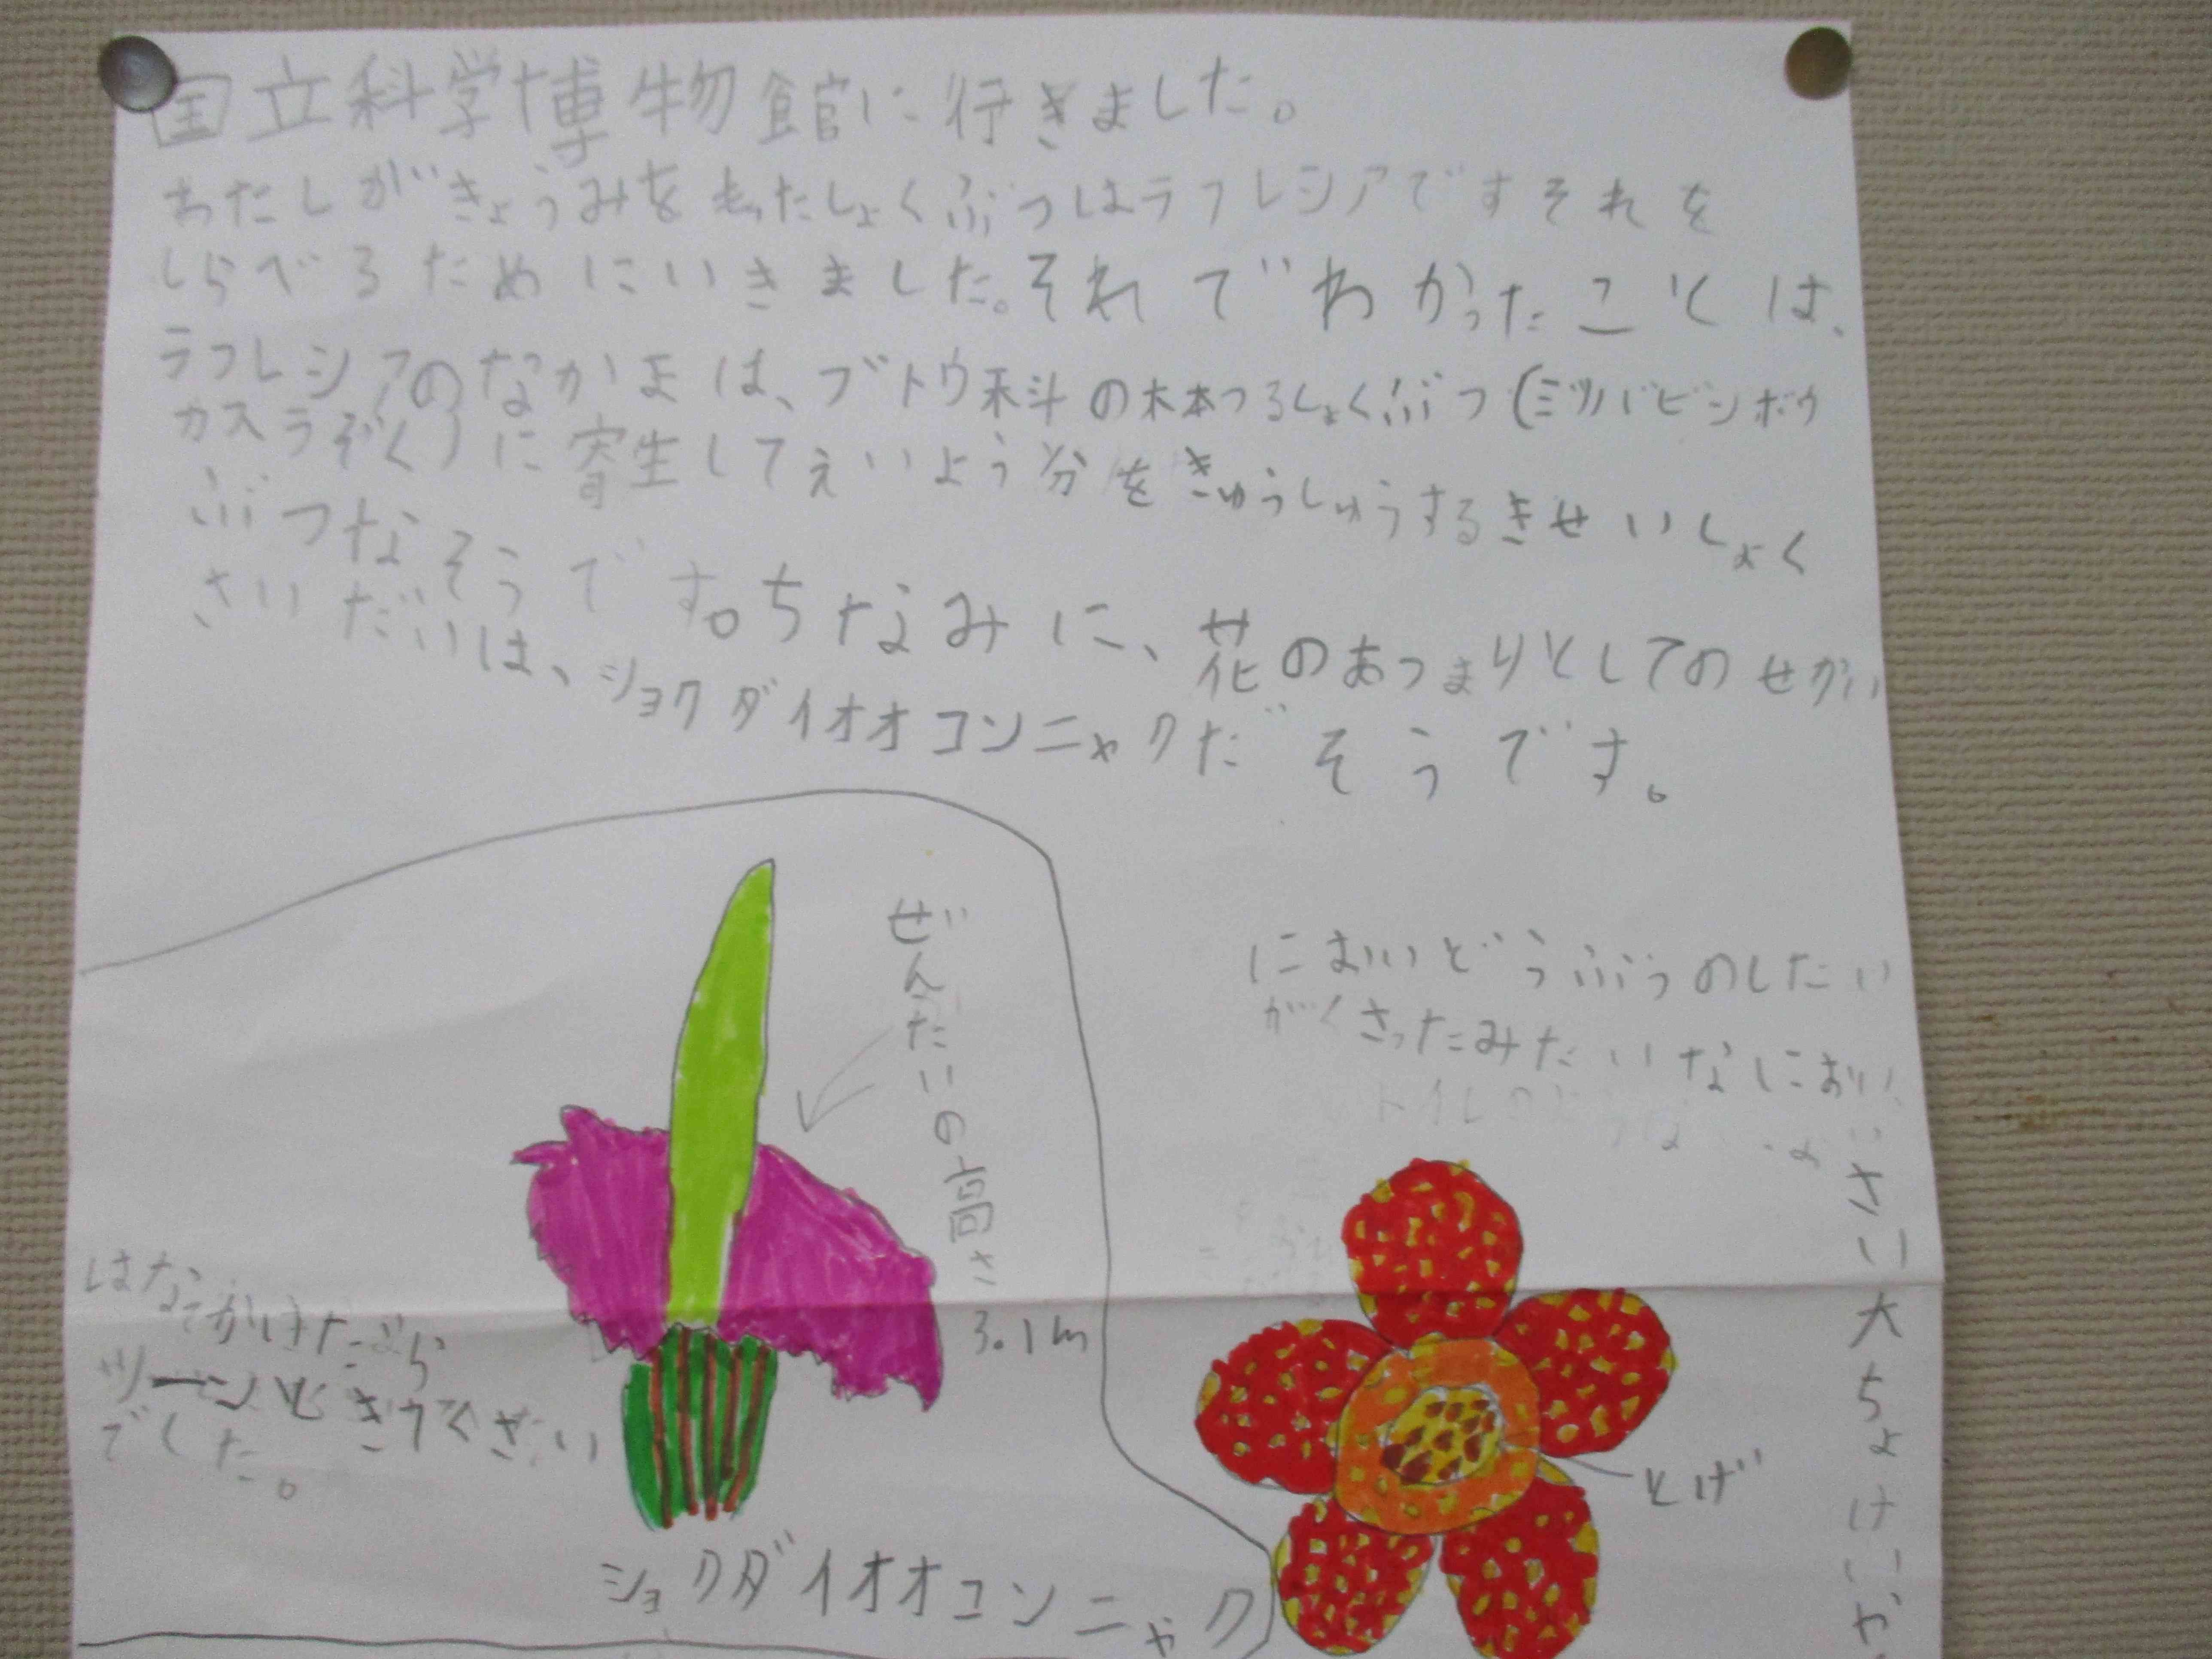 国立科学博物館に行きました。
わたしがきょうみをもったしょくぶつはラフレシアですそれを
しらべるためにいきました。それでわかったことは、
ラフレシアのなかまは、ブトウ科の木本つるしょくぶつ(ミツバビンボウ
カズラぞく)に寄生してえいよう分をきゅうしゅうするきせいしょく
ぶつなそうです。ちなみに、花のあつまりとしてのせかい
さいだいは、ショクダイオオコンニャクだそうです。
ぜんたいの高さ3.1m
はな
ツーンと
でした。
ショクダイオオコンニャク
においどうぶつのしたい
がくさったみたいなにおい
トイレの
さい大ちょけい
とげ